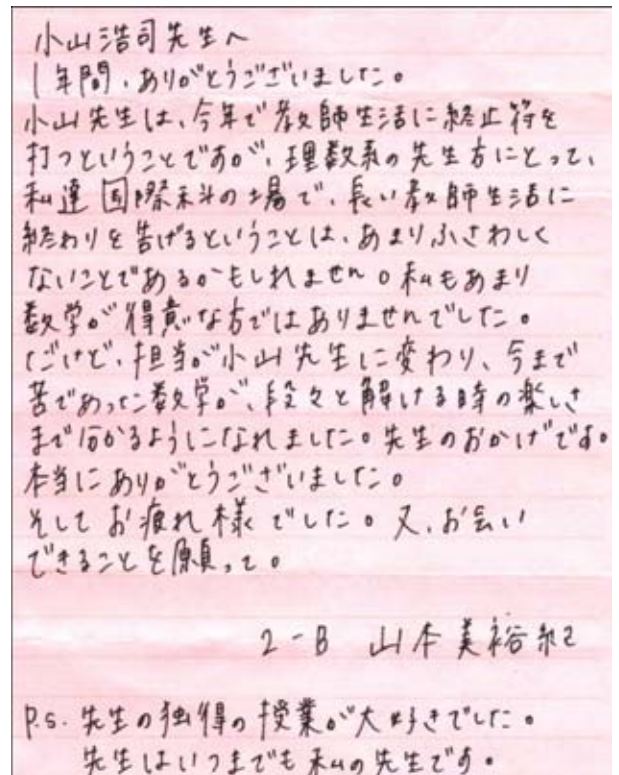 小山浩司先生へ
1年間、ありがとうございました。
小山先生は、今年で教師生活に終止符を
打つということですが、理数系の先生方にとって、
私達国際科の場で、長い教師生活に
終わりを告げるということは、あまりふさわしく
ないことであるかもしれません。私もあまり
数学が得意な方ではありませんでした。
だけど、担当が小山先生に変わり、今まで
苦であった数学が、段々と解ける時の楽しさ
まで分かるようになれました。先生のおかげです。
本当にありがとうございました。
そしてお疲れ様でした。又、お会い
できることを願って。
2-B 山本美裕紀
P.S. 先生の独得の授業が大好きでした。
先生はいつまでも私の先生です。